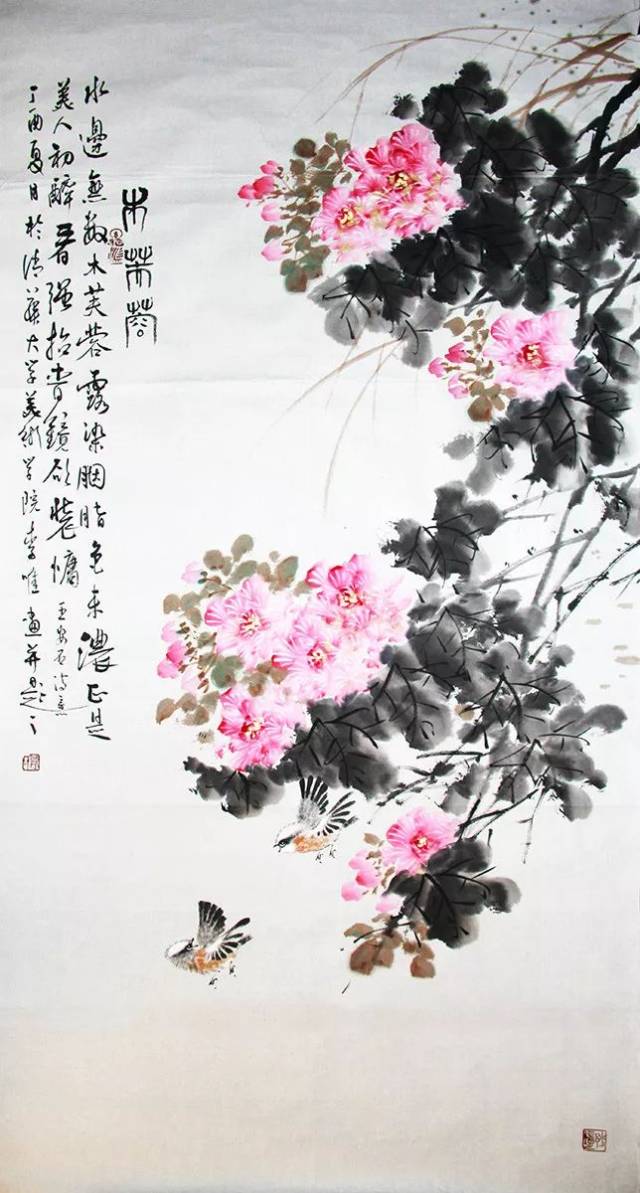 木芙蓉
水邊無數木芙蓉露染胭脂色未濃正是
美人初醉着强抬青鏡欲妝慵 王安石诗意
丁酉夏日於清華大学美術学院李唯畫并題